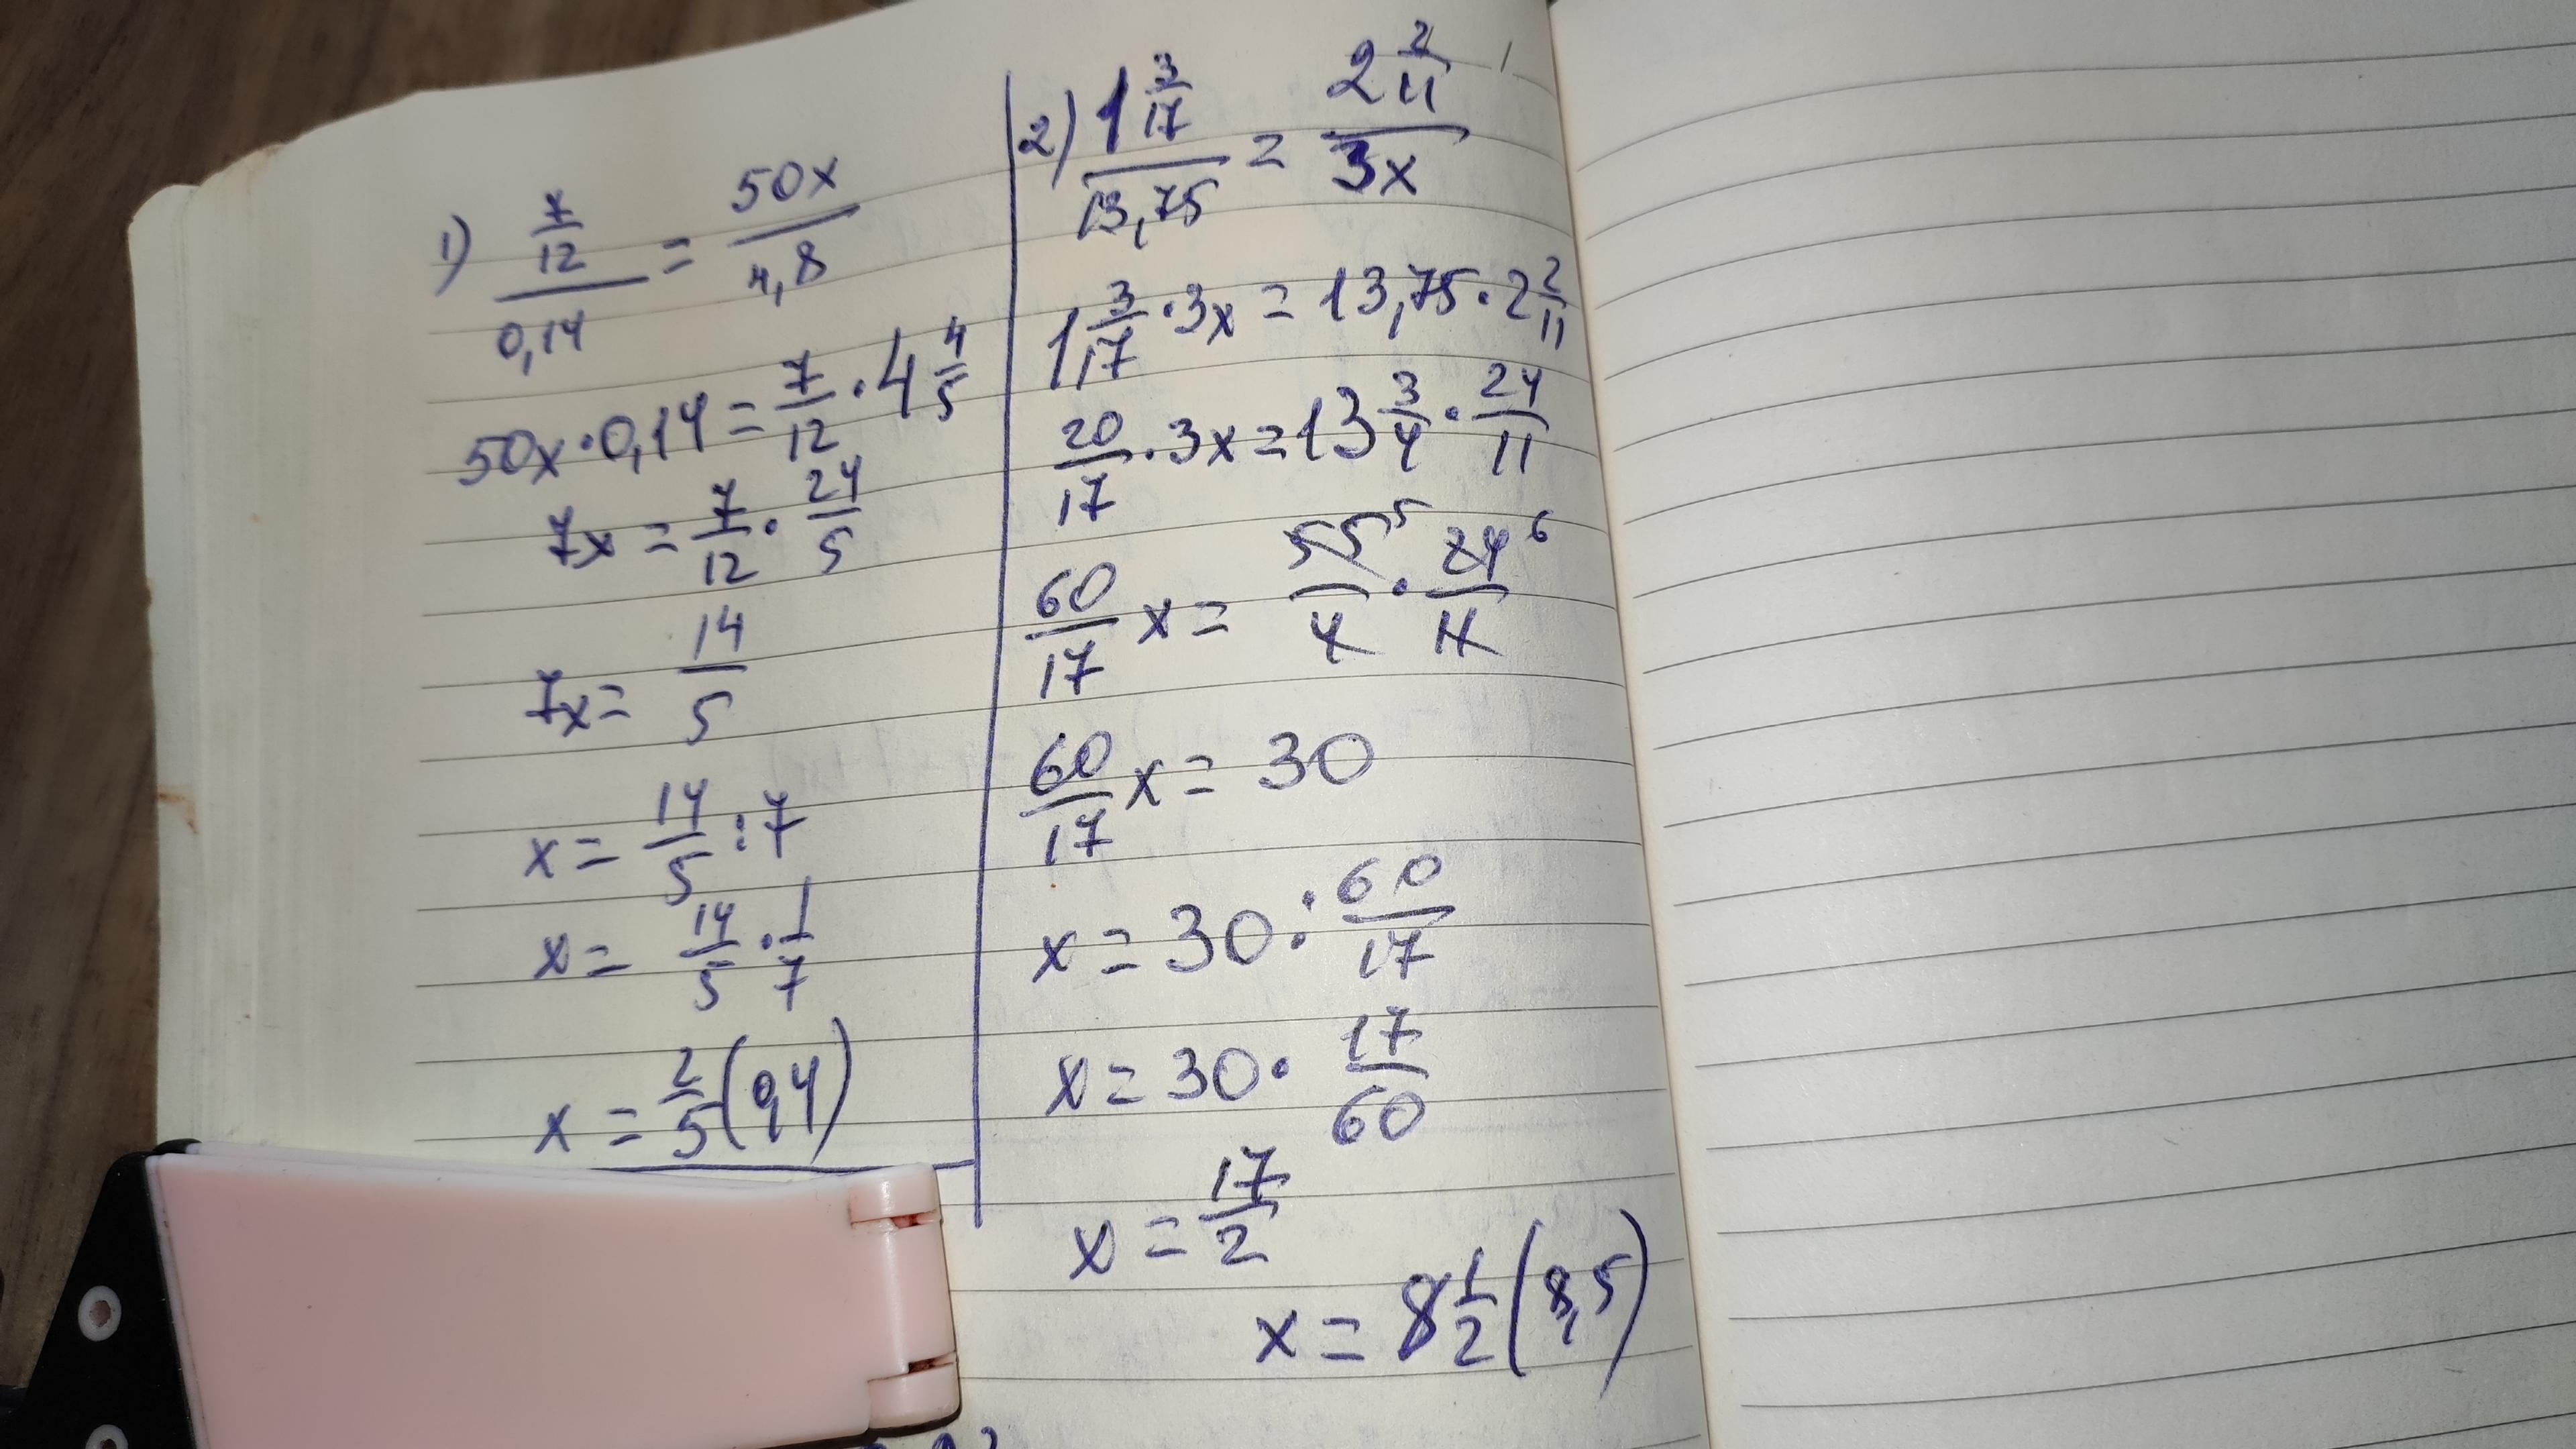 1) 7/12 / 0,14 = 50x / 4,8
50x·0,14 = 7/12 · 4 4/5
7x = 7/12 · 24/5
7x = 14/5
x = 14/5 : 7
x = 14/5 · 1/7
x = 2/5 (0,4)
2) 1 3/17 / 13,75 = 2 2/11 / 3x
1 3/17 · 3x = 13,75 · 2 2/11
20/17 · 3x = 13 3/4 · 24/11
60/17 x = 55 5/4 · 24 6/11
60/17 x = 30
x = 30 : 60/17
x = 30 · 17/60
x = 17/2
x = 8 1/2 (8,5)